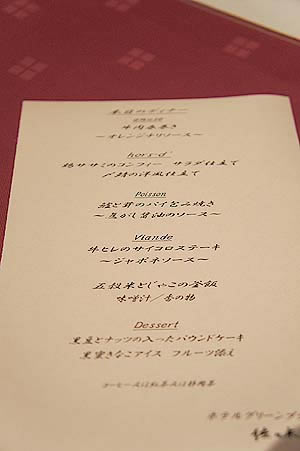 本日のディナー
牛肉巻巻き
～オレンジナリソース～
hors-d'
鶏ササミのコンフィー サラダ仕立て
〆鯖の洋風仕立て
Poisson
鮭と茸のパイ包み焼き
～焦がし醤油のソース～
Viande
牛ヒレのサイコロステーキ
～ジャポネソース～
五穀米とじゃこの釜飯
味噌汁／香の物
Dessert
黒豆とナッツの入ったパウンドケーキ
黒蜜きなこアイス フルーツ添え
コーヒー又は紅茶又は静岡茶
ホテルグリーンプ
佐々木